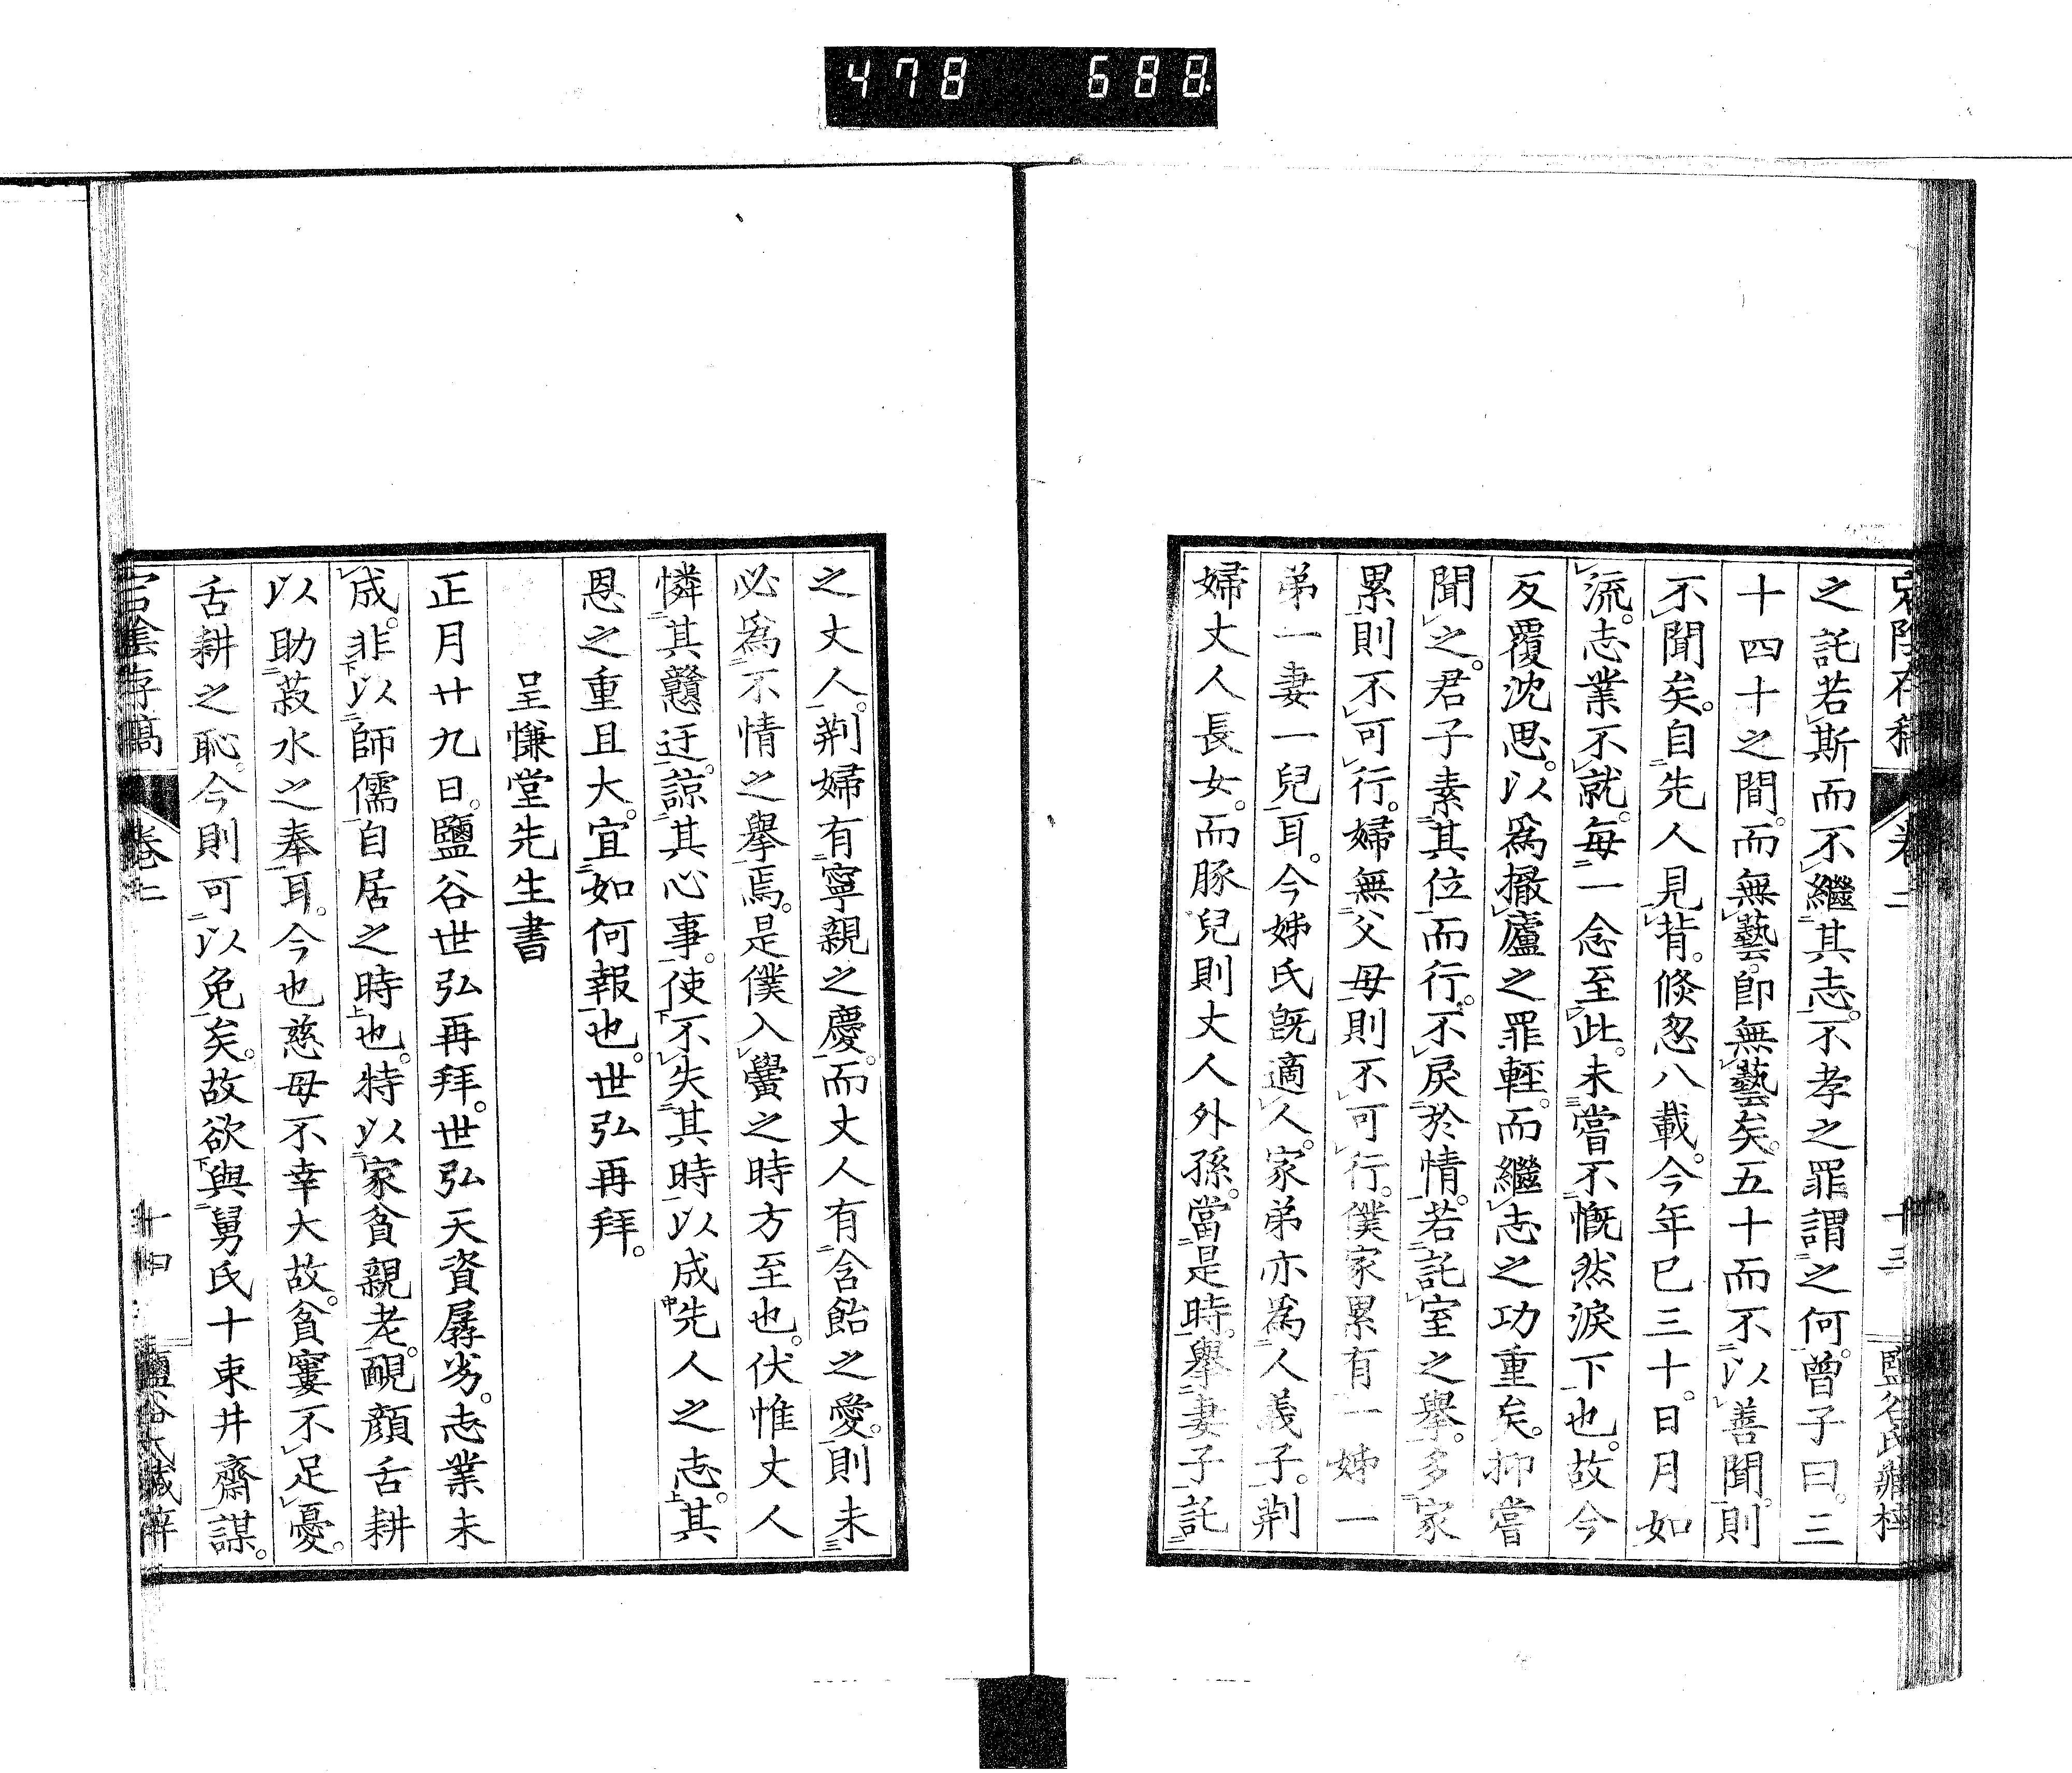 478 688
宕陰存稿 卷二 十三 鹽谷氏藏梓
之託若斯而不繼其志。不孝之罪謂之何。曾子曰。三
十四十之間。而無藝。卽無藝矣。五十而不以善聞。則
不聞矣。自先人見背。倐忽八載。今年已三十。日月如
流。志業不就。每一念至此。未嘗不慨然淚下也。故今
反覆沈思。以爲撮廬之罪輕。而繼志之功重矣。抑嘗
聞之。君子素其位而行。不戾於情。若託室之擧。多家
累則不可行。婦無父母則不可行。僕家累有一姊一
弟一妻一兒耳。今姊氏旣適人。家弟亦爲人義子。荆
婦丈人長女。而豚兒則丈人外孫。當是時。擧妻子託
之丈人。荆婦有寧親之慶。而丈人有含飴之愛。則未
必爲不情之擧焉。是僕入黌之時方至也。伏惟丈人
憐其戇迂。諒其心事。使不失其時以成先人之志。其
恩之重且大。宜如何報也。世弘再拜。
呈慊堂先生書
正月廿九日。鹽谷世弘再拜。世弘天資孱劣。志業未
成。非以師儒自居之時也。特以家貧親老。靦顏舌耕
以助菽水之奉耳。今也慈母不幸大故。貧窶不足憂。
舌耕之恥。今則可以免矣。故欲與舅氏十束井齋謀。
宕陰存稿 卷二 十四 鹽谷氏藏梓